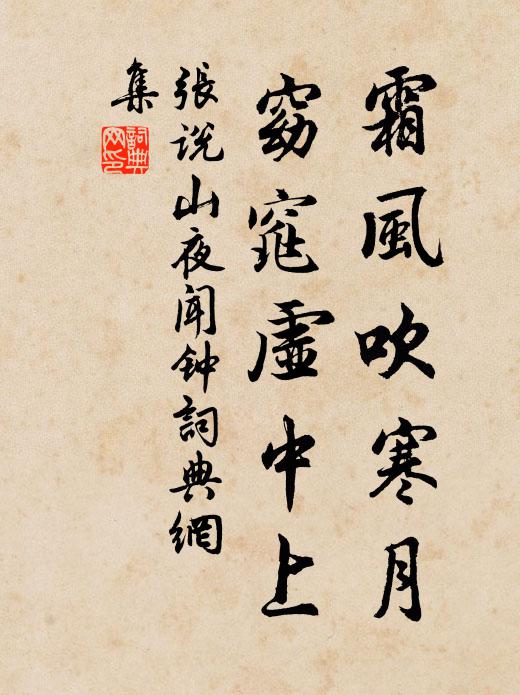 霜風吹寒月
窈窕虛中上
張説山夜闻钟詞典網
集
詞典网印